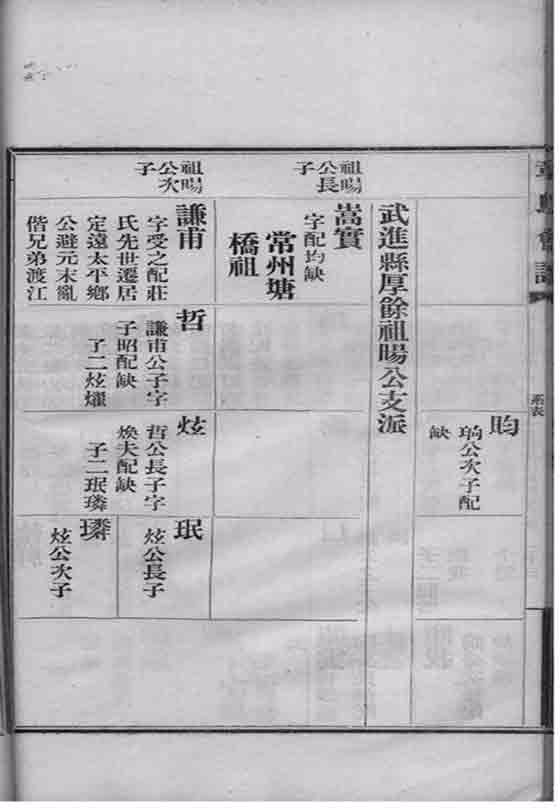 系表
昀
珦公次子配
缺
武進縣厚餘祖暘公支派
祖暘
公長
子
嵩實
字配均缺
常州塘
橋祖
祖暘
公次
子
謙甫
字受之配莊
氏先世遷居
定遠太平鄉
公避元末亂
偕兄弟渡江
哲
謙甫公子字
子昭配缺
子二炫燿
炫
哲公長子字
煥夫配缺
子二珉璘
珉
炫公長子
璘
炫公次子